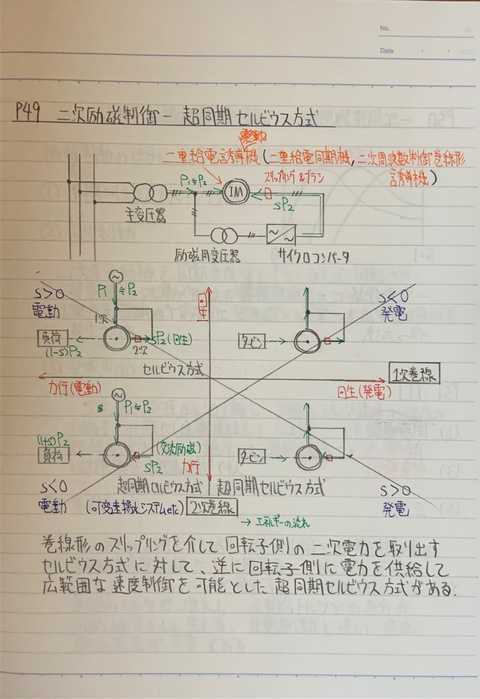 No.
Date
P49 二次励磁制御 - 超同期セルビウス方式
電動
二重給電誘導機(二重給電同期機, 二次周波数制御巻線形
誘導機)
スリップリング&ブラシ
P1≒P2
IM
sP2
主変圧器
励磁用変圧器
サイクロコンバータ
s>0
電動
P1≒P2
回生
s<0
発電
1次
負荷
sP2(回生)
(1-s)P2
2次
タービン
セルビウス方式
1次巻線
力行(電動)
回生(発電)
P1≒P2
(1+s)P2
負荷
(二次励磁)
sP2
力行
タービン
s<0
電動
超同期セルビウス方式
超同期セルビウス方式
s>0
発電
(可変速揚水システムetc)
2次巻線
→ エネルギーの流れ
巻線形のスリップリングを介して回転子側の二次電力を取り出す
セルビウス方式に対して、逆に回転子側に電力を供給して
広範囲な速度制御を可能とした超同期セルビウス方式がある.